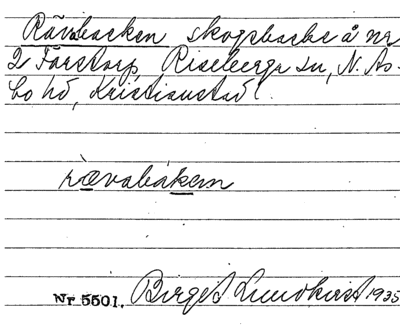 Rävabacken skogsbacke å nr
2 Färstorp, Riseberga sn, N. Ås-
bo hd, Kristianstad l.
rævabakən
Nr 5501. Birgit Lundkvist 1935